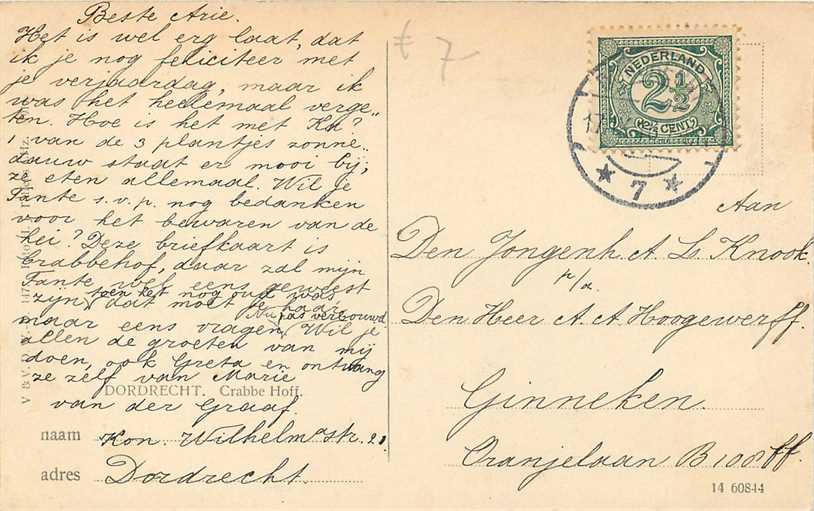 Beste Arie.
Het is wel erg laat, dat
ik je nog feliciteer met
je verjaardag, maar ik
was het heelemaal verge„
ten. Hoe is het met Ka?
1 van de 3 plantjes zonne„
dauw staat er mooi bij,
ze eten allemaal. Wil je
Tante s.v.p. nog bedanken
voor het bewaren van de
hei? Deze briefkaart is
Crabbehof, daar zal mijn
Tante wel eens geweest
zijn, toen het nog oud was
dat moet je haar
maar eens vragen. Nu pas verbouwd
Wil je
allen de groeten van mij
doen, ook Greta en ontvang
ze zelf van Marie
van der Graaf.
DORDRECHT. Crabbe Hoff.
naam Kon. Wilhelmastr. 21
adres Dordrecht.
€ 7
NEDERLAND
2½
2½ CENT
17
7
Aan
Den Jongenh. A. L. Knook.
p/a
Den Heer A. A. Hoogewerff.
Ginneken.
Oranjelaan B 108ff.
14 60844